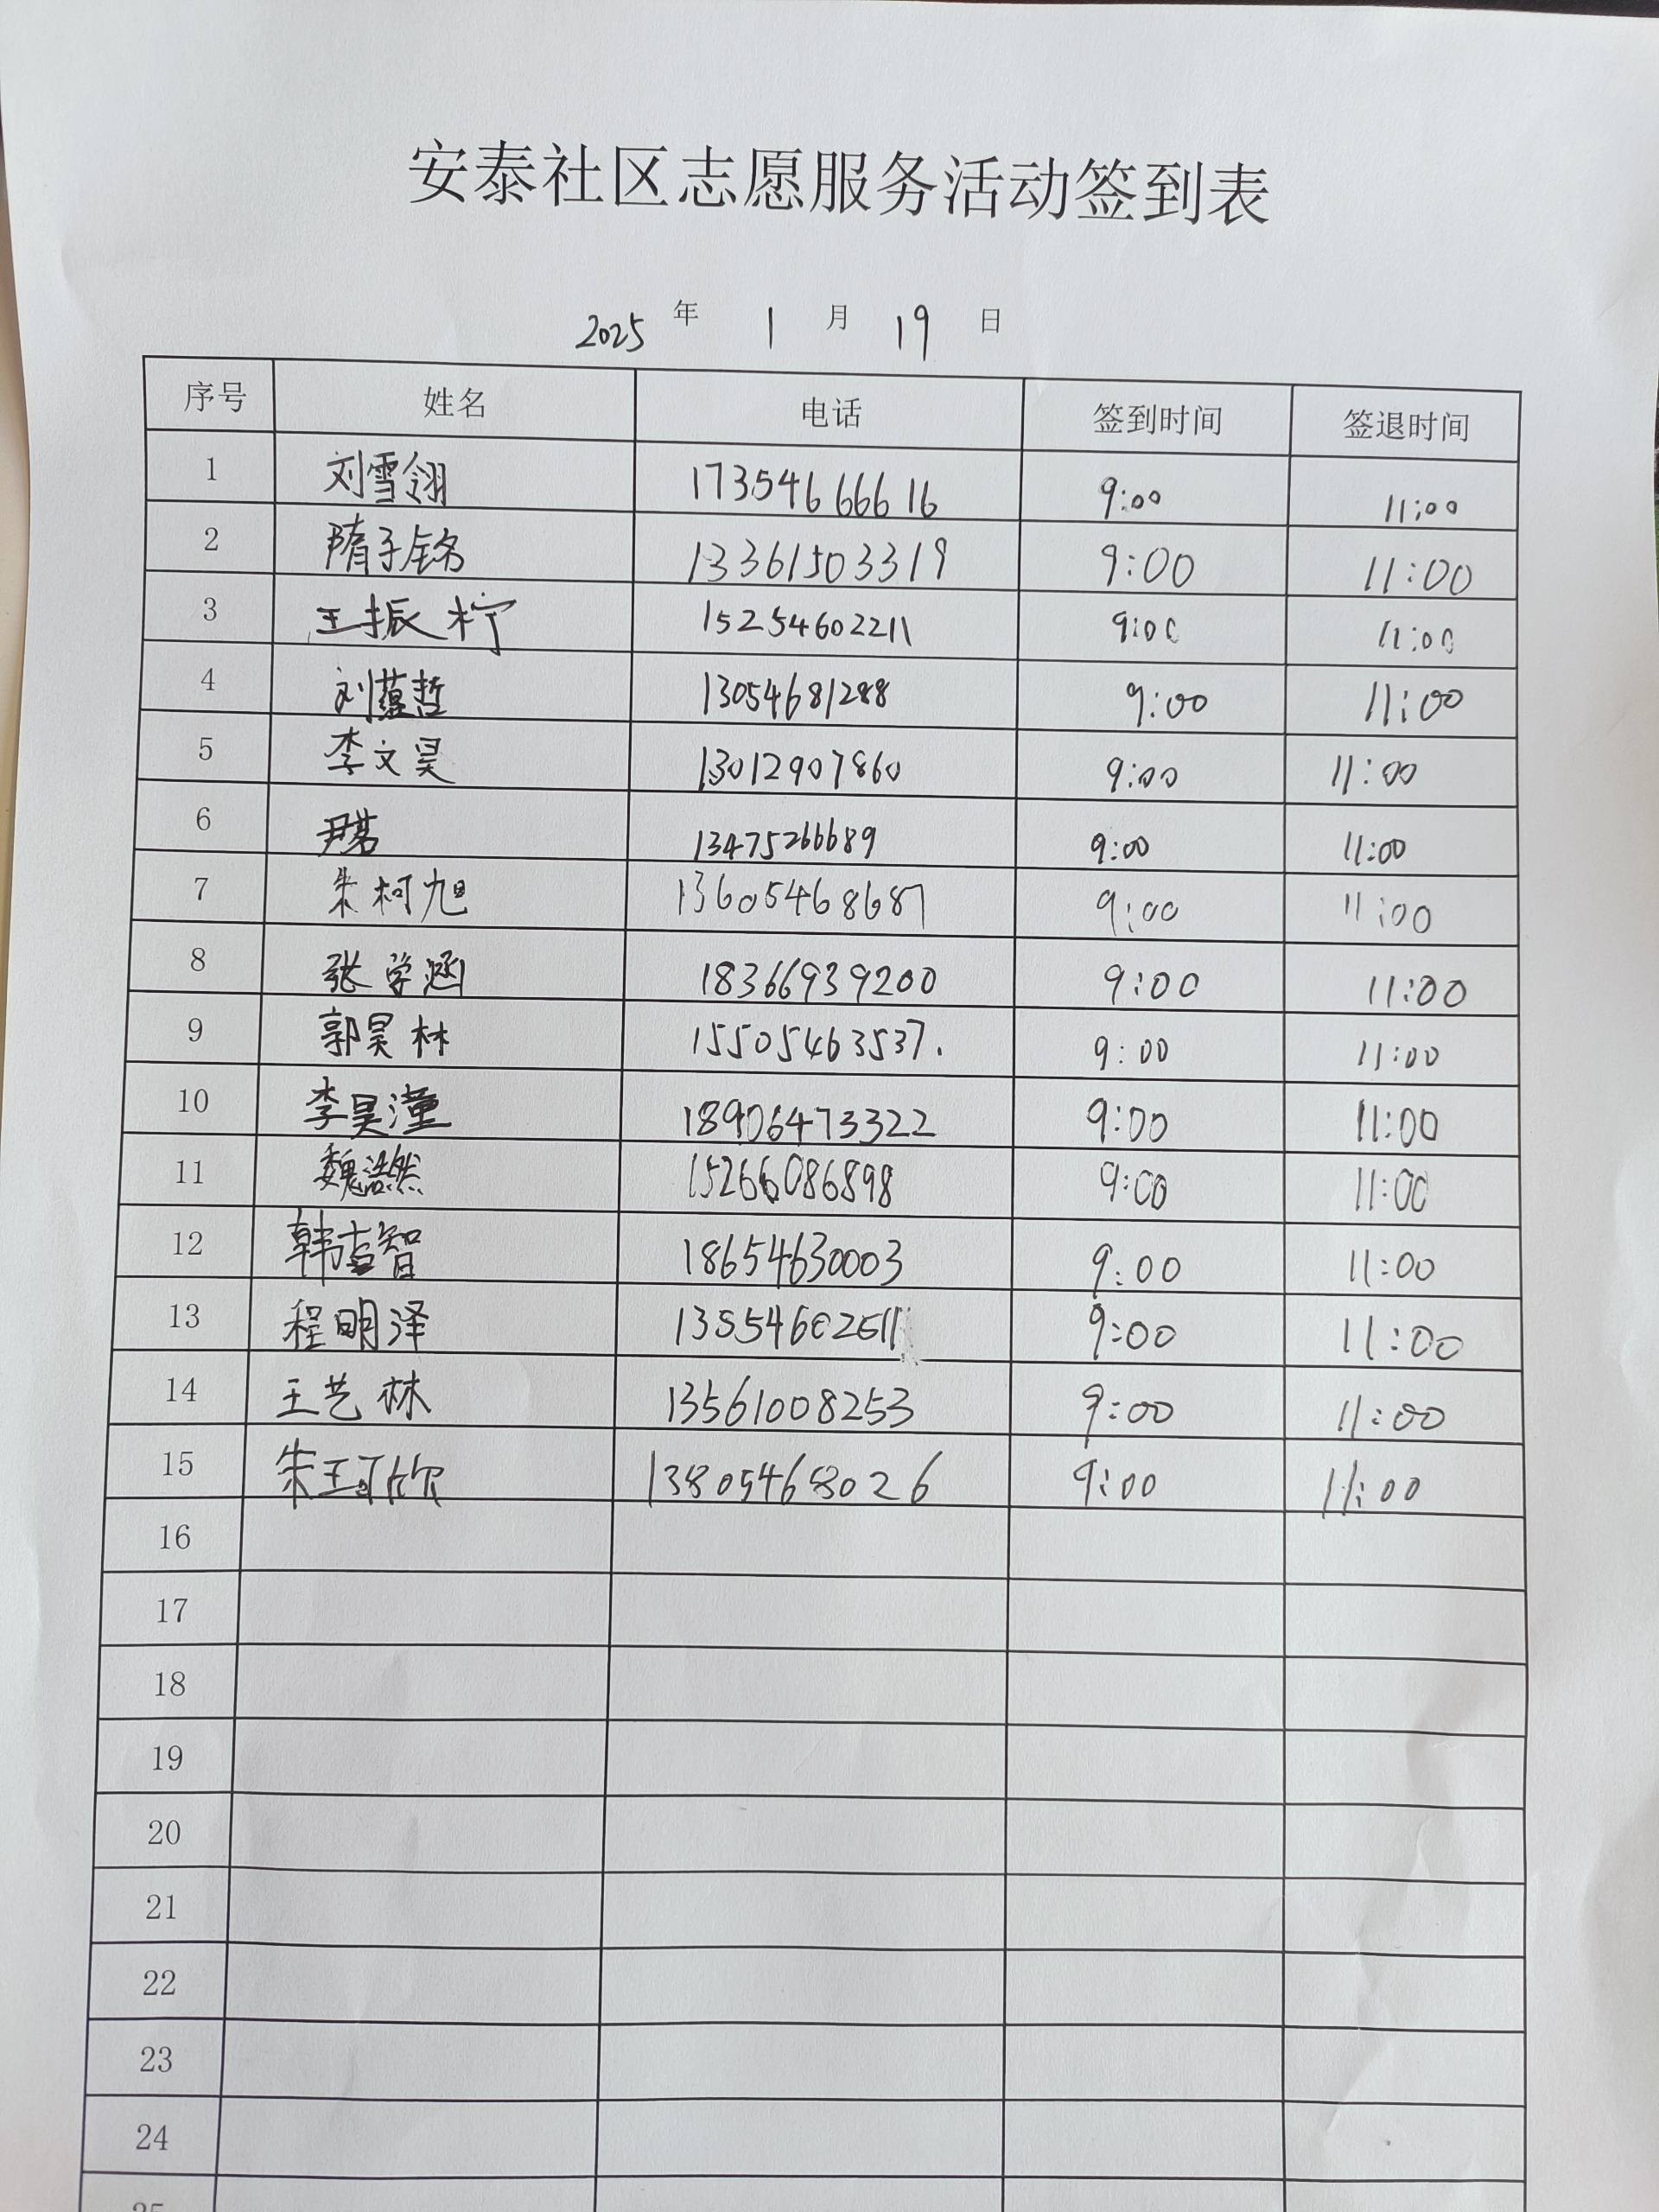 安泰社区志愿服务活动签到表
2025 年 1 月 19 日
序号 姓名 电话 签到时间 签退时间
1 刘雪翎 17354666616 9:00 11:00
2 隋子铭 13361503319 9:00 11:00
3 王振柠 15254602211 9:00 11:00
4 刘蕴哲 13054681288 9:00 11:00
5 李文昊 13012907860 9:00 11:00
6 尹茗 13475266689 9:00 11:00
7 朱柯旭 13605468687 9:00 11:00
8 张学涵 18366939200 9:00 11:00
9 郭昊林 15505463537. 9:00 11:00
10 李昊潼 18906473322 9:00 11:00
11 魏浩然 15266086898 9:00 11:00
12 韩吉智 18654630003 9:00 11:00
13 程明泽 9:00 11:00
14 王艺林 13561008253 9:00 11:00
15 朱王可欣 13805468026 9:00 11:00
16
17
18
19
20
21
22
23
24
25